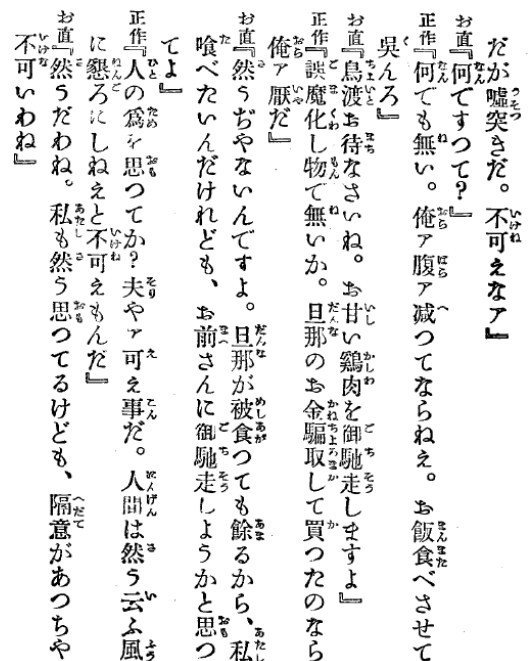 だが嘘突きだ。不可えなァ』
お直『何ですつて?』
正作『何でも無い。俺ァ腹ァ減つてならねえ。お飯食べさせて
呉んろ』
お直『鳥渡お待なさいね。お甘い鶏肉を御馳走しますよ』
正作『誤魔化し物で無いか。旦那のお金騙取して買つたのなら
俺ァ厭だ』
お直『然うぢやないんですよ。旦那が被食つても餘るから、私
喰べたいんだけれども、お前さんに御馳走しようかと思つ
てよ』
正作『人の爲を思つてか?夫やァ可え事だ。人間は然う云ふ風
に懇ろにしねえと不可えもんだ』
お直『然うだわね。私も然う思つてるけども、隔意があつちや
不可いわね』